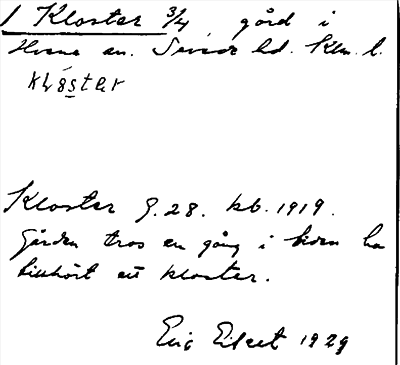 1 Kloster 3/4, gård i
sn. Sevede hd. Klm. l.
Kloster J. 28. kb. 1919.
Gården tros en gång i tiden ha
tillhört ett kloster.
Eric Elfeet 1929